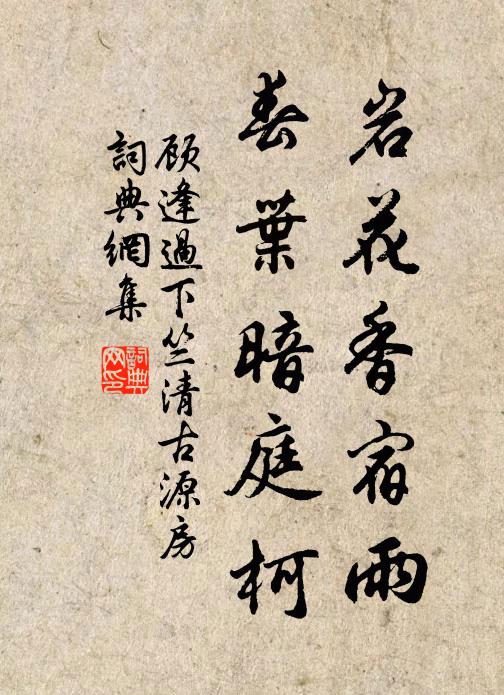 岩花香宿雨
春葉暗庭柯
顾逢過下竺清古源房
詞典網集
詞典网印